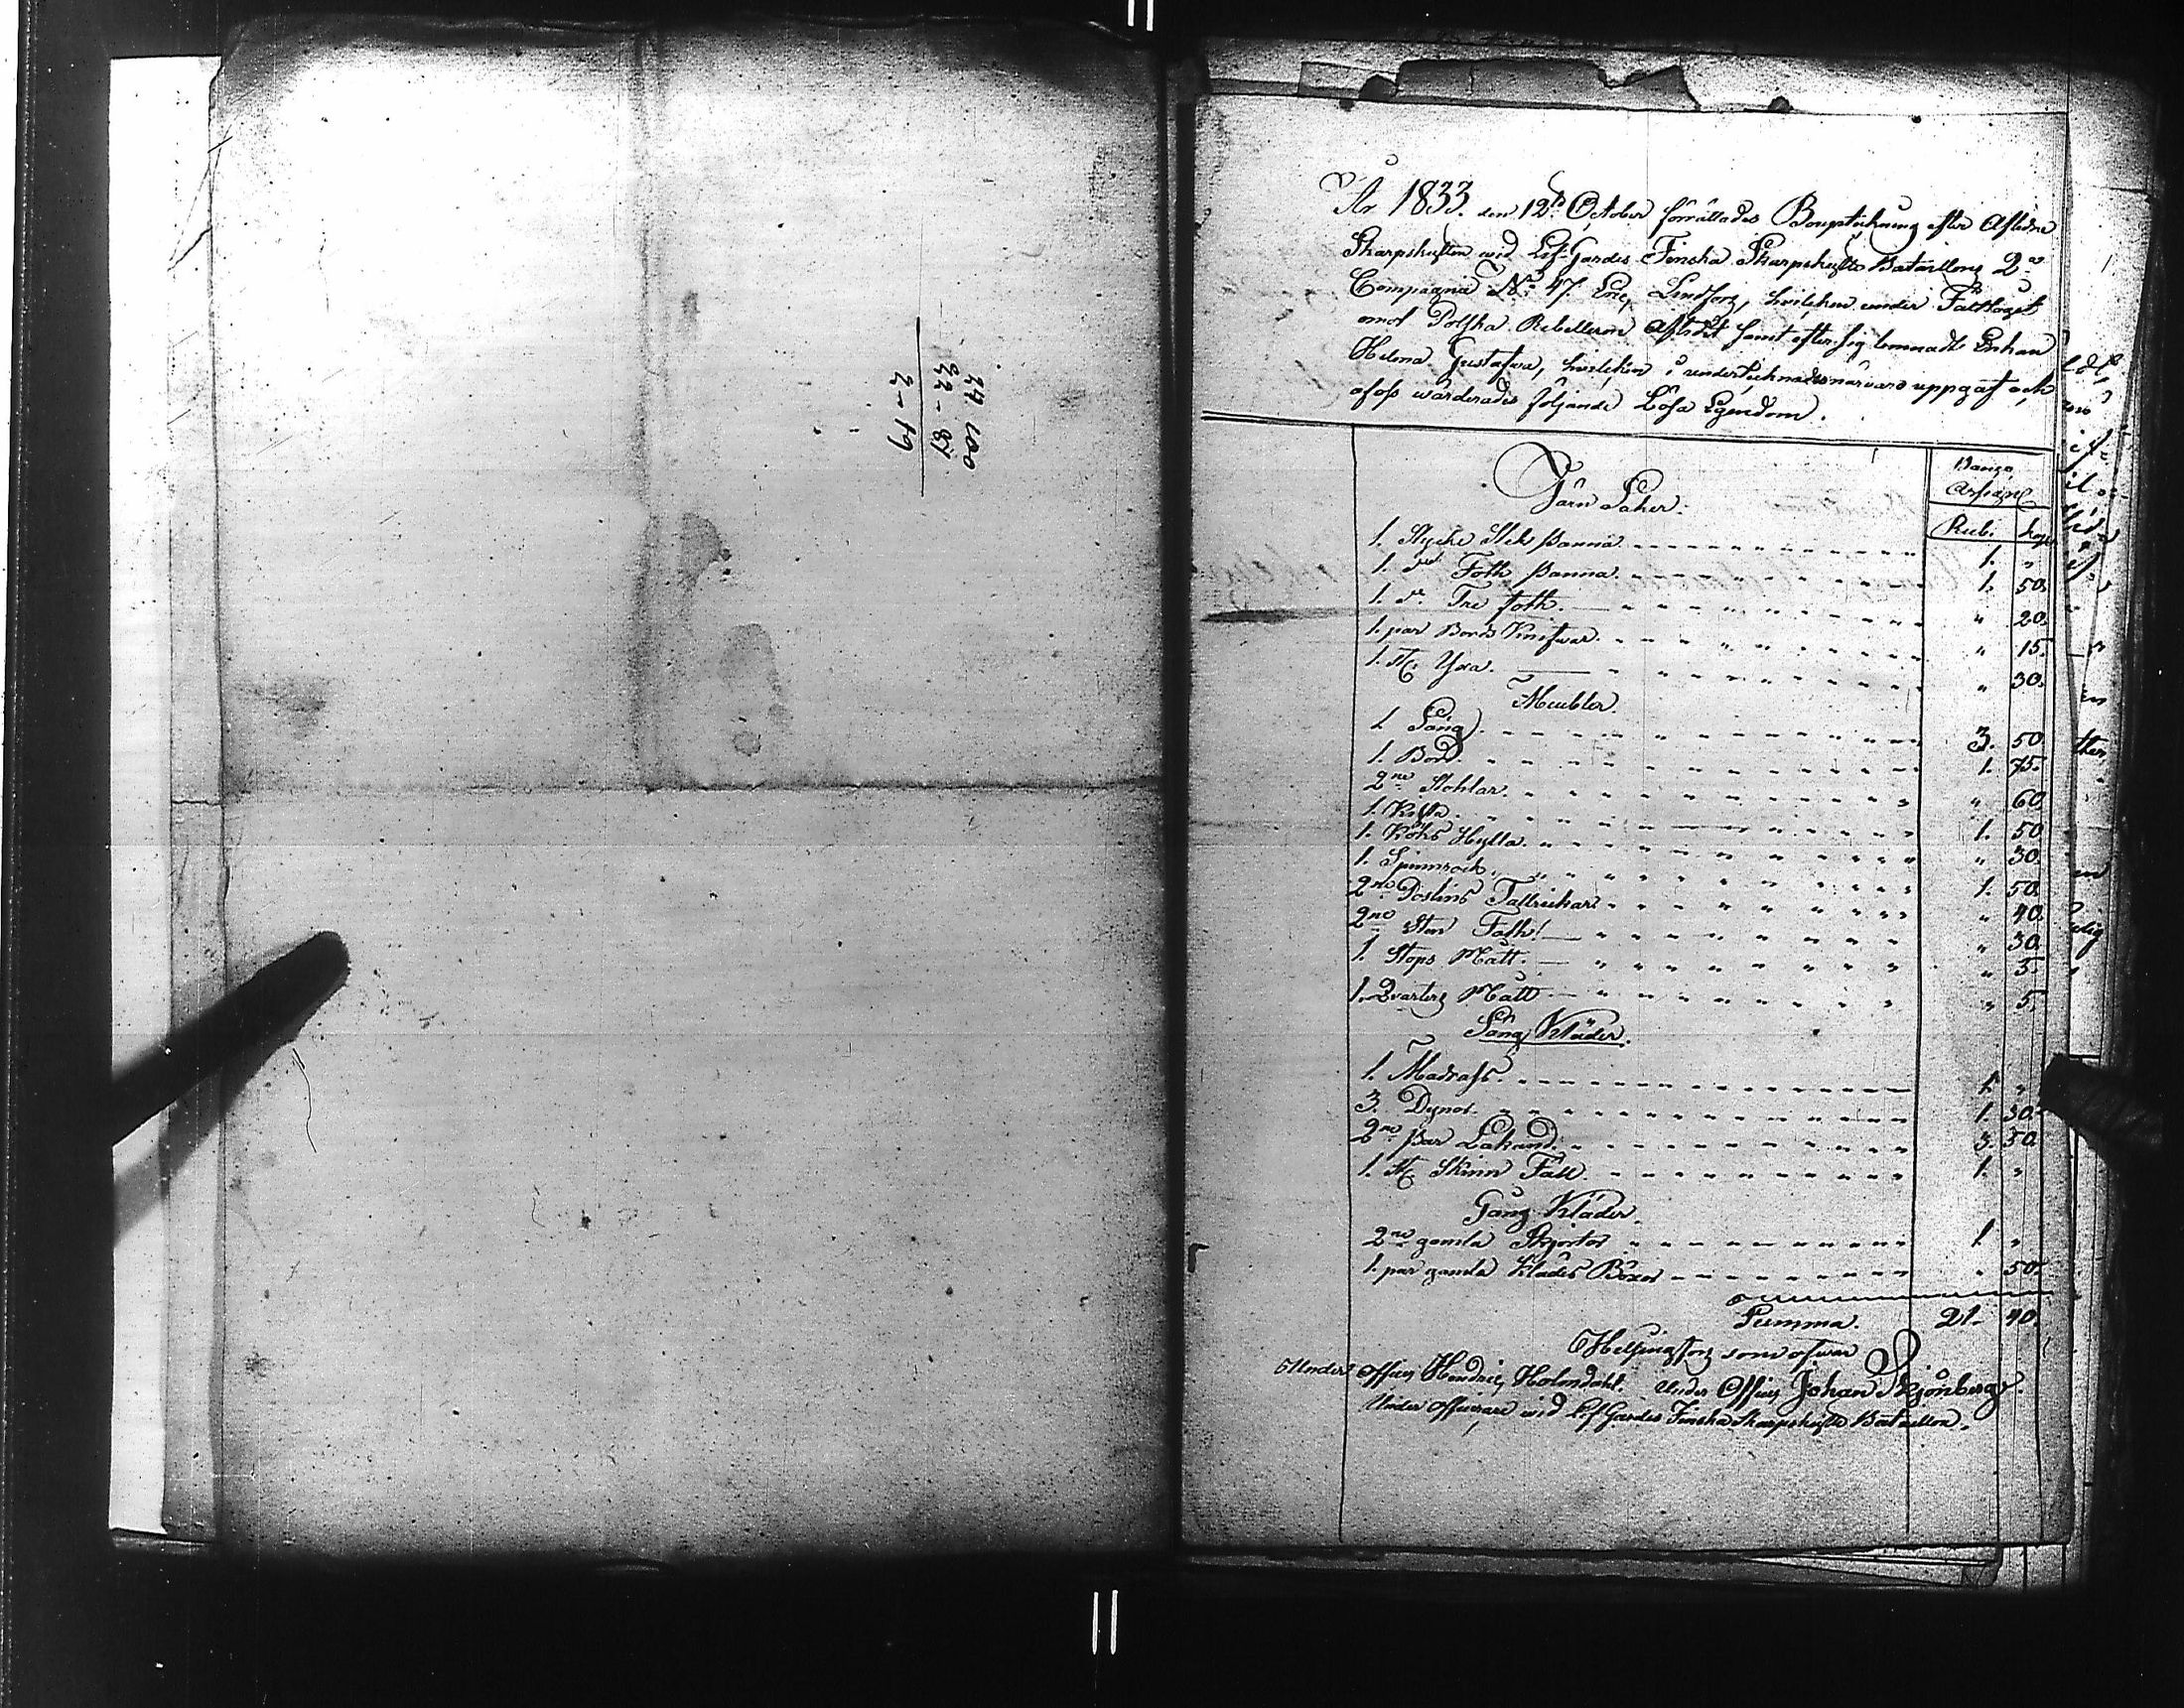 24 100
22 - 81
2 - 19
År 1833. den 12te October förrättades Bouptekning efter Aflidne
Skarpskytten wid Lif-Gardes Finska Skarpskytte Bataillons 2a
Compagnie No 47. Eric Lindfors, hvilcken under Fälttåget
emot Polska Rebellerna Aflidit samt efter sig lemnadt Enkan
Helena Gustafva, hvilcken i undertecknades närvaro uppgaf och
af oss wärderades följande Lösa Egendom.
Banco
Assigne
Rub. kop.
Järn Saker.
1. Stycke Stek Panna 1. "
1. dto Foth Panna 1. 50.
1. do Tre foth. " 20.
1. par Bords Knifwar. " 15.
1. St. Yxa. " 30.
Meubler.
1. Säng. 3. 50
1. Bord. 1. 75.
2ne Stohlar. " 60
1. Kista. 1. 50
1. Köks Hylla. " 30
1. Spinnrock. 1. 50.
2ne Poslins Tallrickar. " 40.
2ne Sten Fath. " 30.
1. Stops Mått. " 5.
1. Qvarters Mått " 5.
Säng Kläder.
1. Madrass. 1. "
3. Dynor. 1. 30.
2ne Par Lakand. 3. 50
1. St. Skinn Fäll. 1. "
Gång Kläder.
2ne gamla Skjortor 1 "
1. par gamla Klädes Böxor " 50.
Summa. 21. 40.
Helsingfors som ofwan
Under Officer Hendric Holmdahl. Under Officer Johan Skjönberg.
Under officerare wid Lif Gardes Finska Skarpskytte Bataillon.